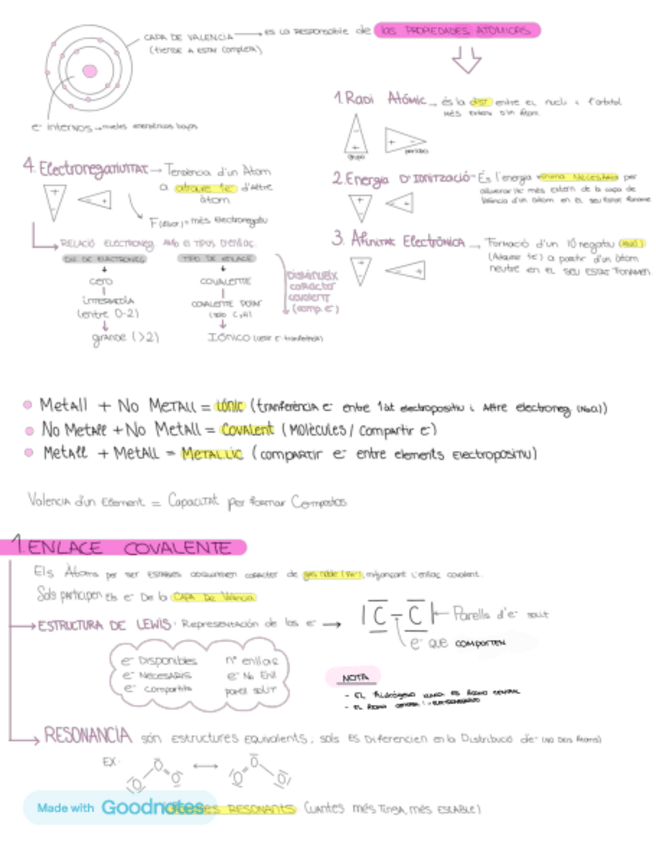 CAPA DE VALENCIA → es la responsable de las PROPIEDADES ATÓMICAS
(tiende a estar completa)
e⁻ internos → niveles energéticos bajos
1. Radi Atómic → és la dist entre el nucli i l'orbital
més extern d'un Àtom
grupo
període
2. Energia D'IONITZACIÓ - És l'energia mínima necessària per
més extern de la capa de
València d'un àtom en el seu estat
3. Afinitat Electrònica → Formació d'un IÓ negatiu
(Atraure 1e⁻) a partir d'un àtom
neutre en el seu estat fonamen
4. Electronegativitat → Tendència d'un Àtom
a atraure 1e⁻ d'altre
àtom
F (Fluor) = més electronegatiu
RELACIÓ ELECTRONEG. AMB EL TIPUS D'ENLAÇ
DIF DE ELECTRONEG
TIPO DE ENLACE
CERO
COVALENTE
INTERMEDIA
(entre 0-2)
COVALENTE POLAR
grande (>2)
Iónico
Disminueix
caràcter
covalent
(comp. e⁻)
Metall + No Metall = iònic (tranferència e⁻ entre 1at electropositiu i Altre electroneg (NaCl))
No Metall + No Metall = Covalent (Molècules / Compartir e⁻)
Metall + Metall = METAL·LIC (compartir e⁻ entre elements electropositiu)
Valencia d'un Element = Capacitat per formar Compostos
1. ENLACE COVALENTE
Els Àtoms per ser estables adquireixen caràcter de gas noble mitjançant l'enllaç covalent.
Sols participen els e⁻ De la CAPA De Valencia
ESTRUCTURA DE LEWIS: Representación de los e⁻ → |C̲ - C̲| Parells d'e⁻ solit
e⁻ que comporten
e⁻ Disponibles nº enllaç
e⁻ Necesaris e⁻ No Enll
e⁻ compartits parell solit
NOTA
- EL Hidrógeno nunca es átomo central
RESONANCIA són estructures equivalents; sols es Diferencien en la Distribució de⁻
EX:
O O O ↔ O O O
RESONANTS (Quantes més Tinga, més estable)
Made with Goodnotes